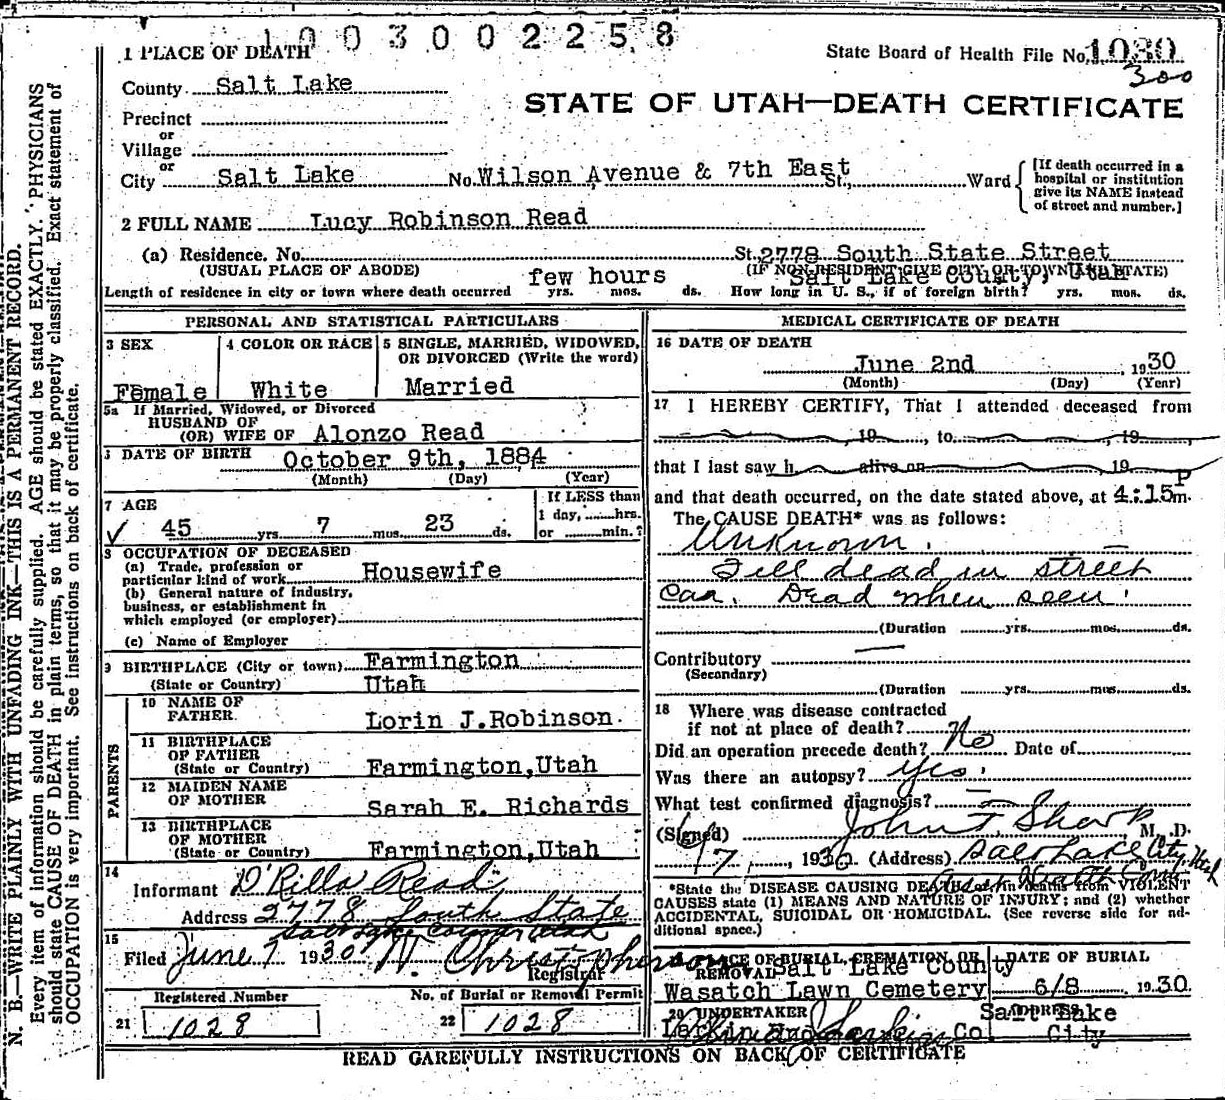 1003002258
1 PLACE OF DEATH
State Board of Health File No. 1030
300
County Salt Lake
STATE OF UTAH—DEATH CERTIFICATE
Precinct
or
Village
or
City Salt Lake No. Wilson Avenue & 7th East St., Ward
[If death occurred in a
hospital or institution
give its NAME instead
of street and number.]
2 FULL NAME Lucy Robinson Read
(a) Residence. No. St. 2778 South State Street
(USUAL PLACE OF ABODE) (IF NON-RESIDENT GIVE CITY OR TOWN AND STATE)
Salt Lake County, Utah
Length of residence in city or town where death occurred few hours yrs. mos. ds. How long in U. S., if of foreign birth? yrs. mos. ds.
PERSONAL AND STATISTICAL PARTICULARS
3 SEX 4 COLOR OR RACE 5 SINGLE, MARRIED, WIDOWED,
OR DIVORCED (Write the word)
Female White Married
5a If Married, Widowed, or Divorced
HUSBAND OF
(OR) WIFE OF Alonzo Read
DATE OF BIRTH October 9th, 1884
(Month) (Day) (Year)
7 AGE If LESS than
1 day, hrs.
45 yrs. 7 mos. 23 ds. or min.?
8 OCCUPATION OF DECEASED
(a) Trade, profession or
particular kind of work Housewife
(b) General nature of industry,
business, or establishment in
which employed (or employer)
(c) Name of Employer
9 BIRTHPLACE (City or town) Farmington
(State or Country) Utah
PARENTS
10 NAME OF
FATHER. Lorin J.Robinson.
11 BIRTHPLACE
OF FATHER
(State or Country) Farmington,Utah
12 MAIDEN NAME
OF MOTHER Sarah E. Richards
13 BIRTHPLACE
OF MOTHER
(State or Country) Farmington,Utah
14
Informant D'Rilla Read
Address 2778 South State
Salt Lake County Utah
15
Filed June 7 1930 N. Christopherson
Registrar
Registered Number No. of Burial or Removal Permit
21 1028 22 1028
MEDICAL CERTIFICATE OF DEATH
16 DATE OF DEATH
June 2nd 1930
(Month) (Day) (Year)
17 I HEREBY CERTIFY, That I attended deceased from
19 , to , 19
that I last saw h alive on 19
and that death occurred, on the date stated above, at 4:15 P m.
The CAUSE DEATH* was as follows:
Unknown.
Fell dead in street
Car. Dead when seen.
(Duration yrs. mos. ds.
Contributory
(Secondary)
(Duration yrs. mos. ds.
18 Where was disease contracted
if not at place of death?
Did an operation precede death? No Date of
Was there an autopsy? Yes.
What test confirmed diagnosis?
(Signed) John T. Sharp M. D.
6/7, 1930 (Address) Salt Lake City, Utah
*State the DISEASE CAUSING DEATH or in deaths from VIOLENT
CAUSES state (1) MEANS AND NATURE OF INJURY; and (2) whether
ACCIDENTAL, SUICIDAL OR HOMICIDAL. (See reverse side for ad-
ditional space.)
PLACE OF BURIAL, CREMATION, OR DATE OF BURIAL
REMOVAL Salt Lake County
Wasatch Lawn Cemetery 6/8 1930
20 UNDERTAKER ADDRESS
Salt Lake
Larkin Co City
READ CAREFULLY INSTRUCTIONS ON BACK OF CERTIFICATE
N. B.—WRITE PLAINLY WITH UNFADING INK—THIS IS A PERMANENT RECORD.
Every item of information should be carefully supplied. AGE should be stated EXACTLY. PHYSICIANS
should state CAUSE OF DEATH in plain terms, so that it may be properly classified. Exact statement of
OCCUPATION is very important. See instructions on back of certificate.